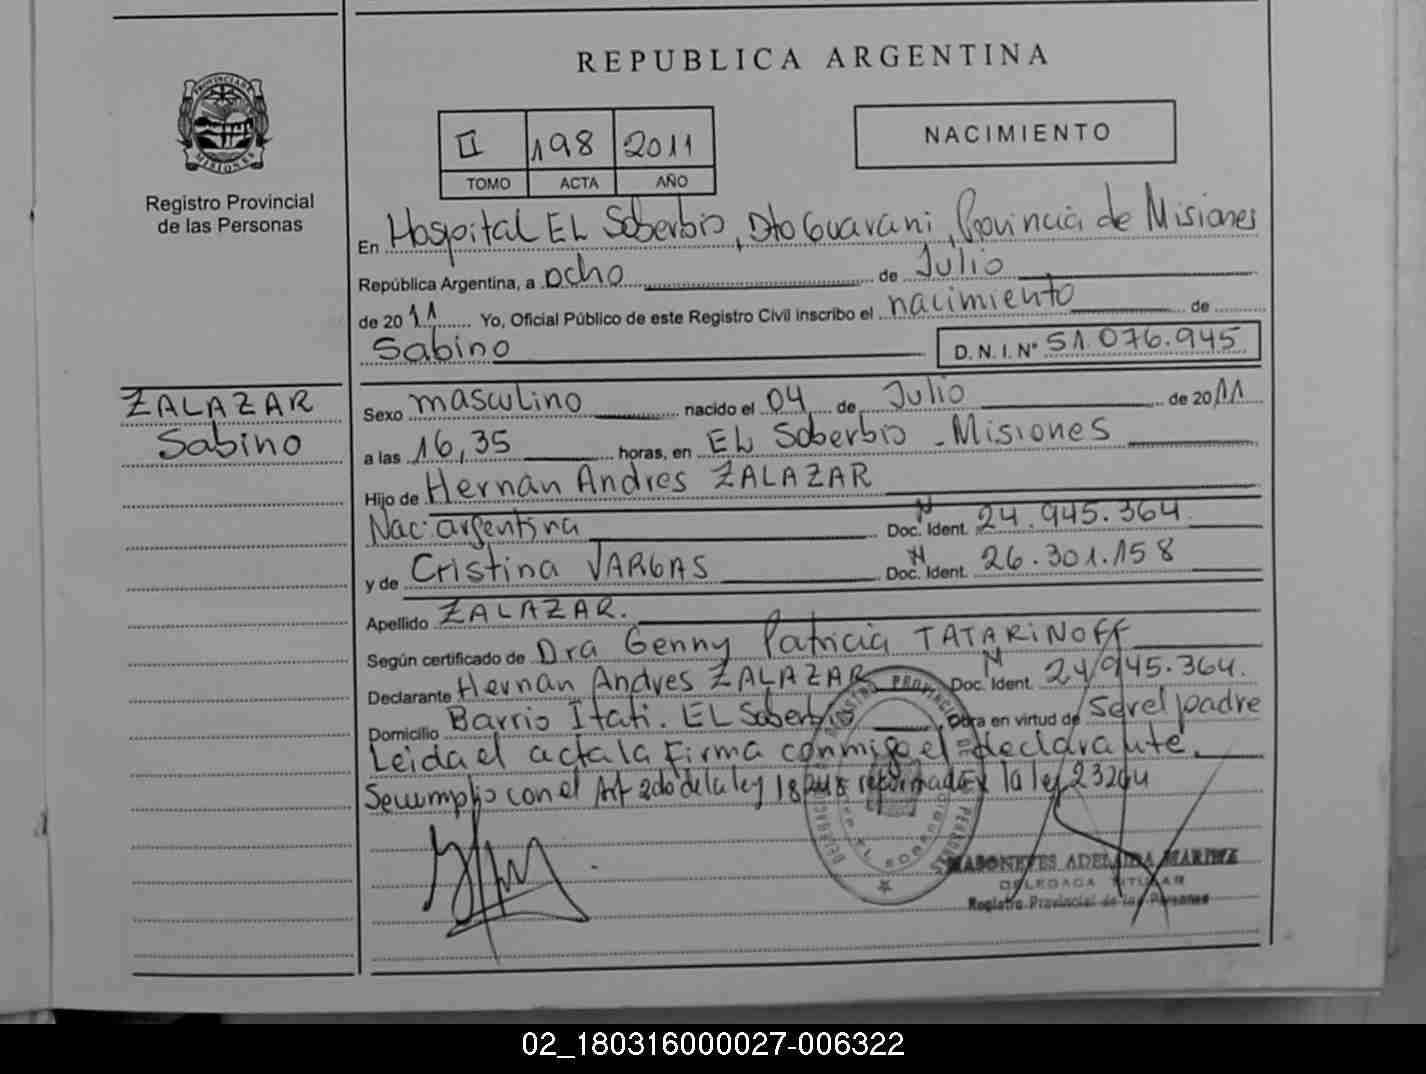 REPUBLICA ARGENTINA
PROVINCIA DE
MISIONES
Registro Provincial
de las Personas
II 198 2011
TOMO ACTA AÑO
NACIMIENTO
En Hospital EL Soberbio, Dto Guarani, Provincia de Misiones
República Argentina, a ocho de Julio
de 2011 Yo, Oficial Público de este Registro Civil inscribo el nacimiento de
Sabino D.N.I. Nº 51.076.945
ZALAZAR
Sabino
Sexo masculino nacido el 04 de Julio de 2011
a las 16,35 horas, en EL Soberbio - Misiones
Hijo de Hernan Andres ZALAZAR
Nac: argentina Doc. Ident. 24.945.364
y de Cristina VARGAS Doc. Ident. 26.301.158
Apellido ZALAZAR.
Según certificado de Dra Genny Patricia TATARINOFF
Declarante Hernan Andres ZALAZAR Doc. Ident. 24.945.364.
Domicilio Barrio Itati. EL Soberbio Obra en virtud de ser el padre
Leida el acta la Firma conmigo el declarante.
Se cumplio con el Art 2do de la ley 18248 reformado x la ley 23264
ADELAIDA
DELEGADA TITULAR
Registro Provincial de las Personas
02_180316000027-006322